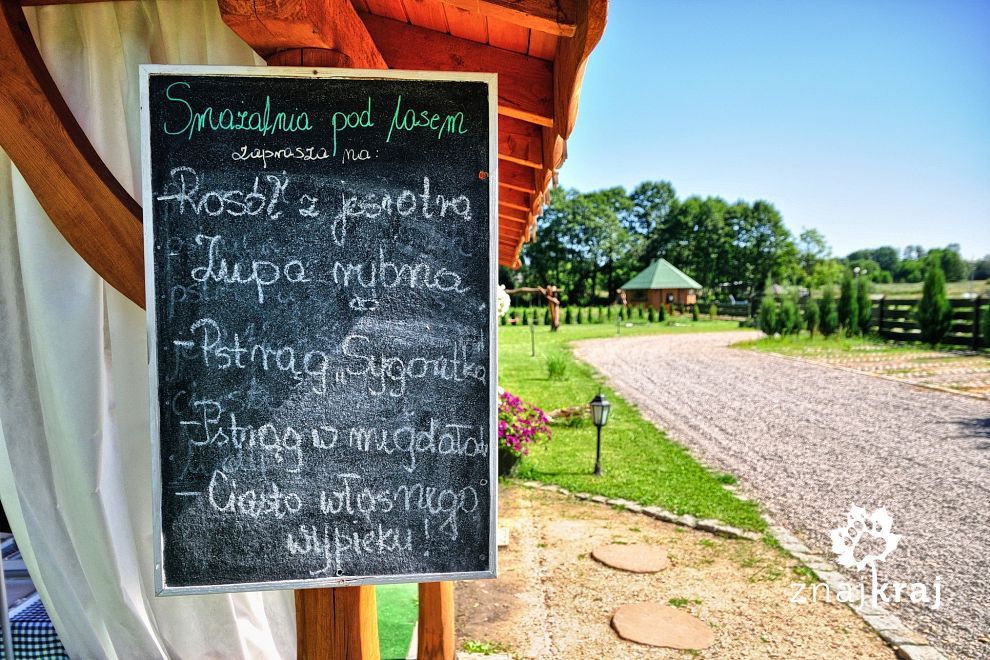 Smażalnia pod lasem
zaprasza na:
- Rosół z jesiotra
Zupa rybna
- Pstrąg „Sygontka
- Pstrąg w migdałach
- Ciasto własnego
wypieku!
znajkraj